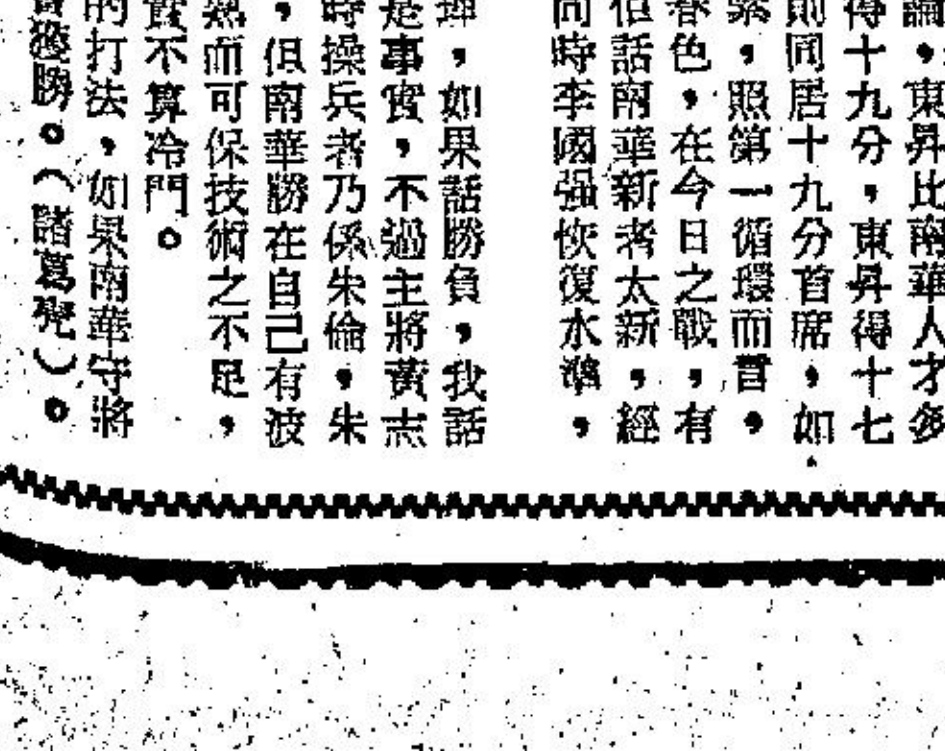 論，東昇比南華人才多
得十九分，東昇得十七
則同居十九分首席，如
緊，照第一循環而言，
春色，在今日之戰，有
但話南華新者太新，經
同時李國强恢復水準，
理，如果話勝負，我話
是事實，不過主將黃志
時操兵者乃係朱倫，朱
，但南華勝在自己有波
熟而可保技術之不足，
實不算冷門。
的打法，如果南華守將
後勝。（諸葛兜）。